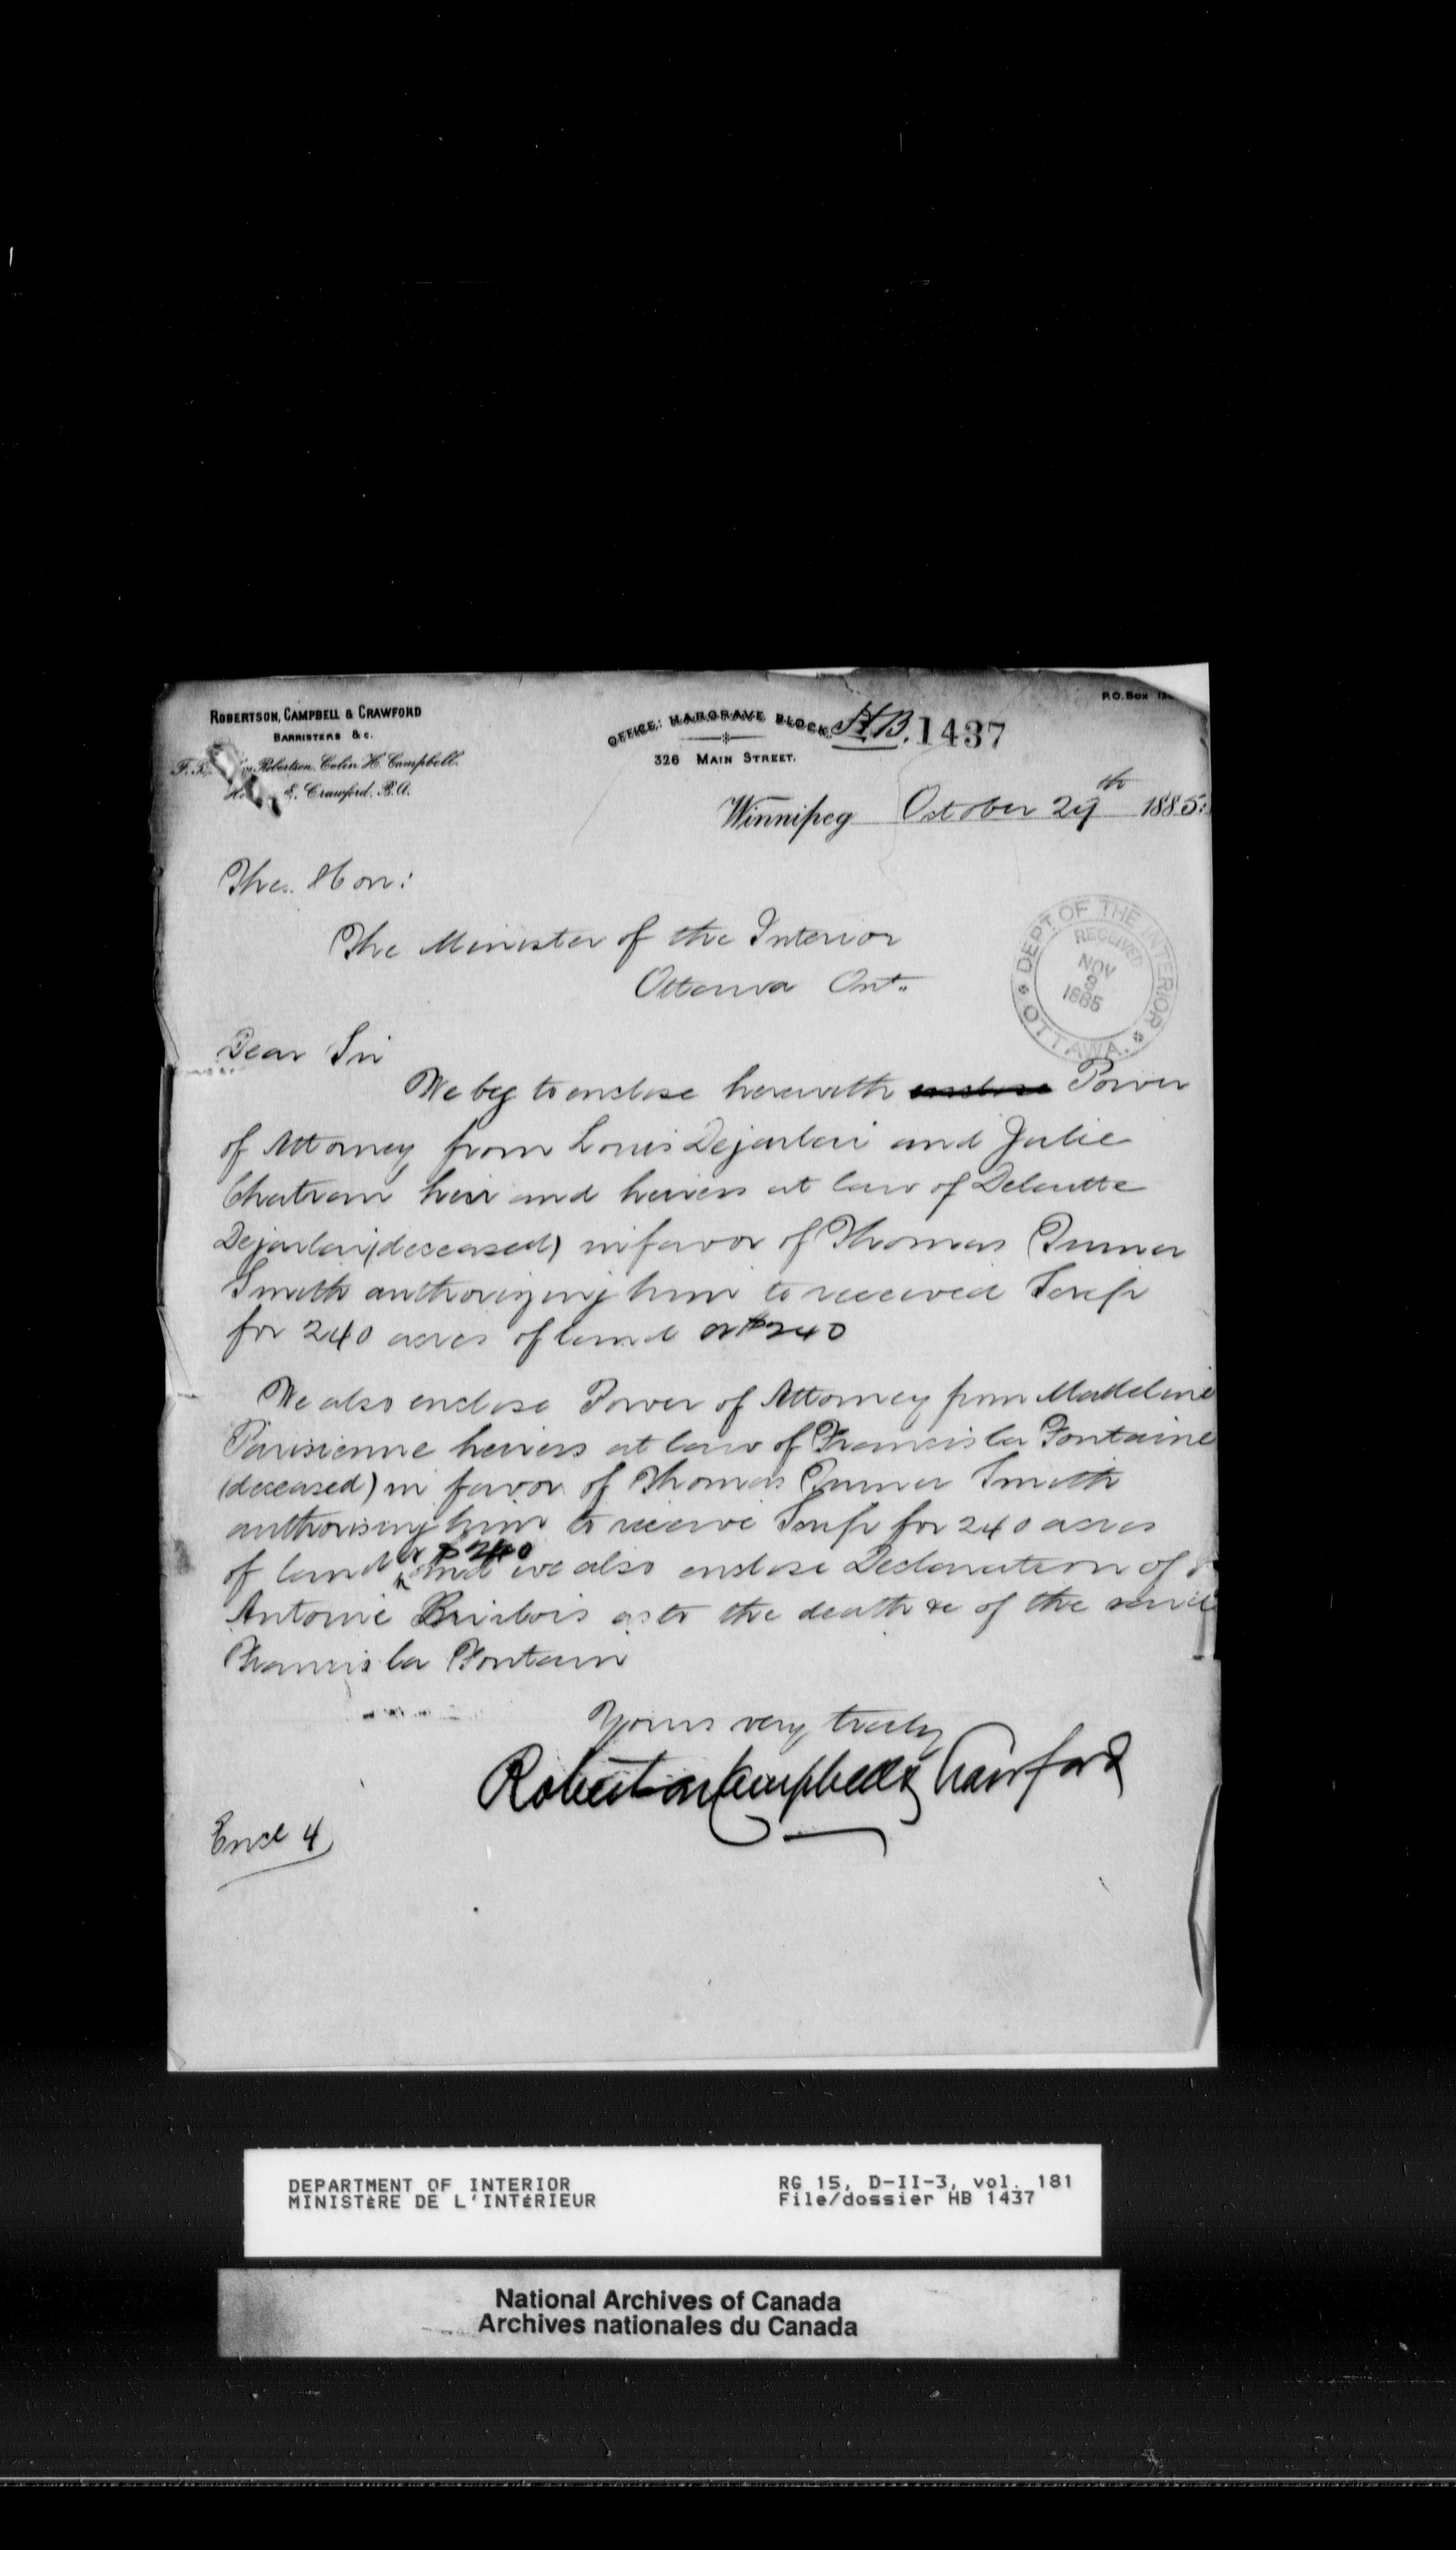 ROBERTSON, CAMPBELL & CRAWFORD
BARRISTERS &c.
Robertson. Colin H. Campbell.
E. Crawford. B.A.
OFFICE: HARGRAVE BLOCK
326 MAIN STREET.
P.O. Box
H.B. 1437
Winnipeg October 29th 1885.
The Hon:
The Minister of the Interior
Ottawa Ont.
DEPT OF THE INTERIOR
RECEIVED
NOV
3
1885
OTTAWA.
Dear Sir
We beg to enclose herewith enclose Power
of Attorney from Louis Dejarlai and Julie
heir and heiress at law of
Dejarlai (deceased) in favor of Thomas Turner
Smith authorizing him to received Scrip
for 240 acres of land or $240
We also enclose Power of Attorney from Madeleine
Parisienne heiress at law of Francis la Fontaine
(deceased) in favor of Thomas Turner Smith
authorising him to receive Scrip for 240 acres
of land or $240 and we also enclose Declaration of
Antoine as to the death &c of the said
Francis la Fontain
Yours very truly
Robertson Campbell & Crawford
Encl 4
DEPARTMENT OF INTERIOR
MINISTèRE DE L'INTéRIEUR
RG 15, D-II-3, vol. 181
File/dossier HB 1437
National Archives of Canada
Archives nationales du Canada